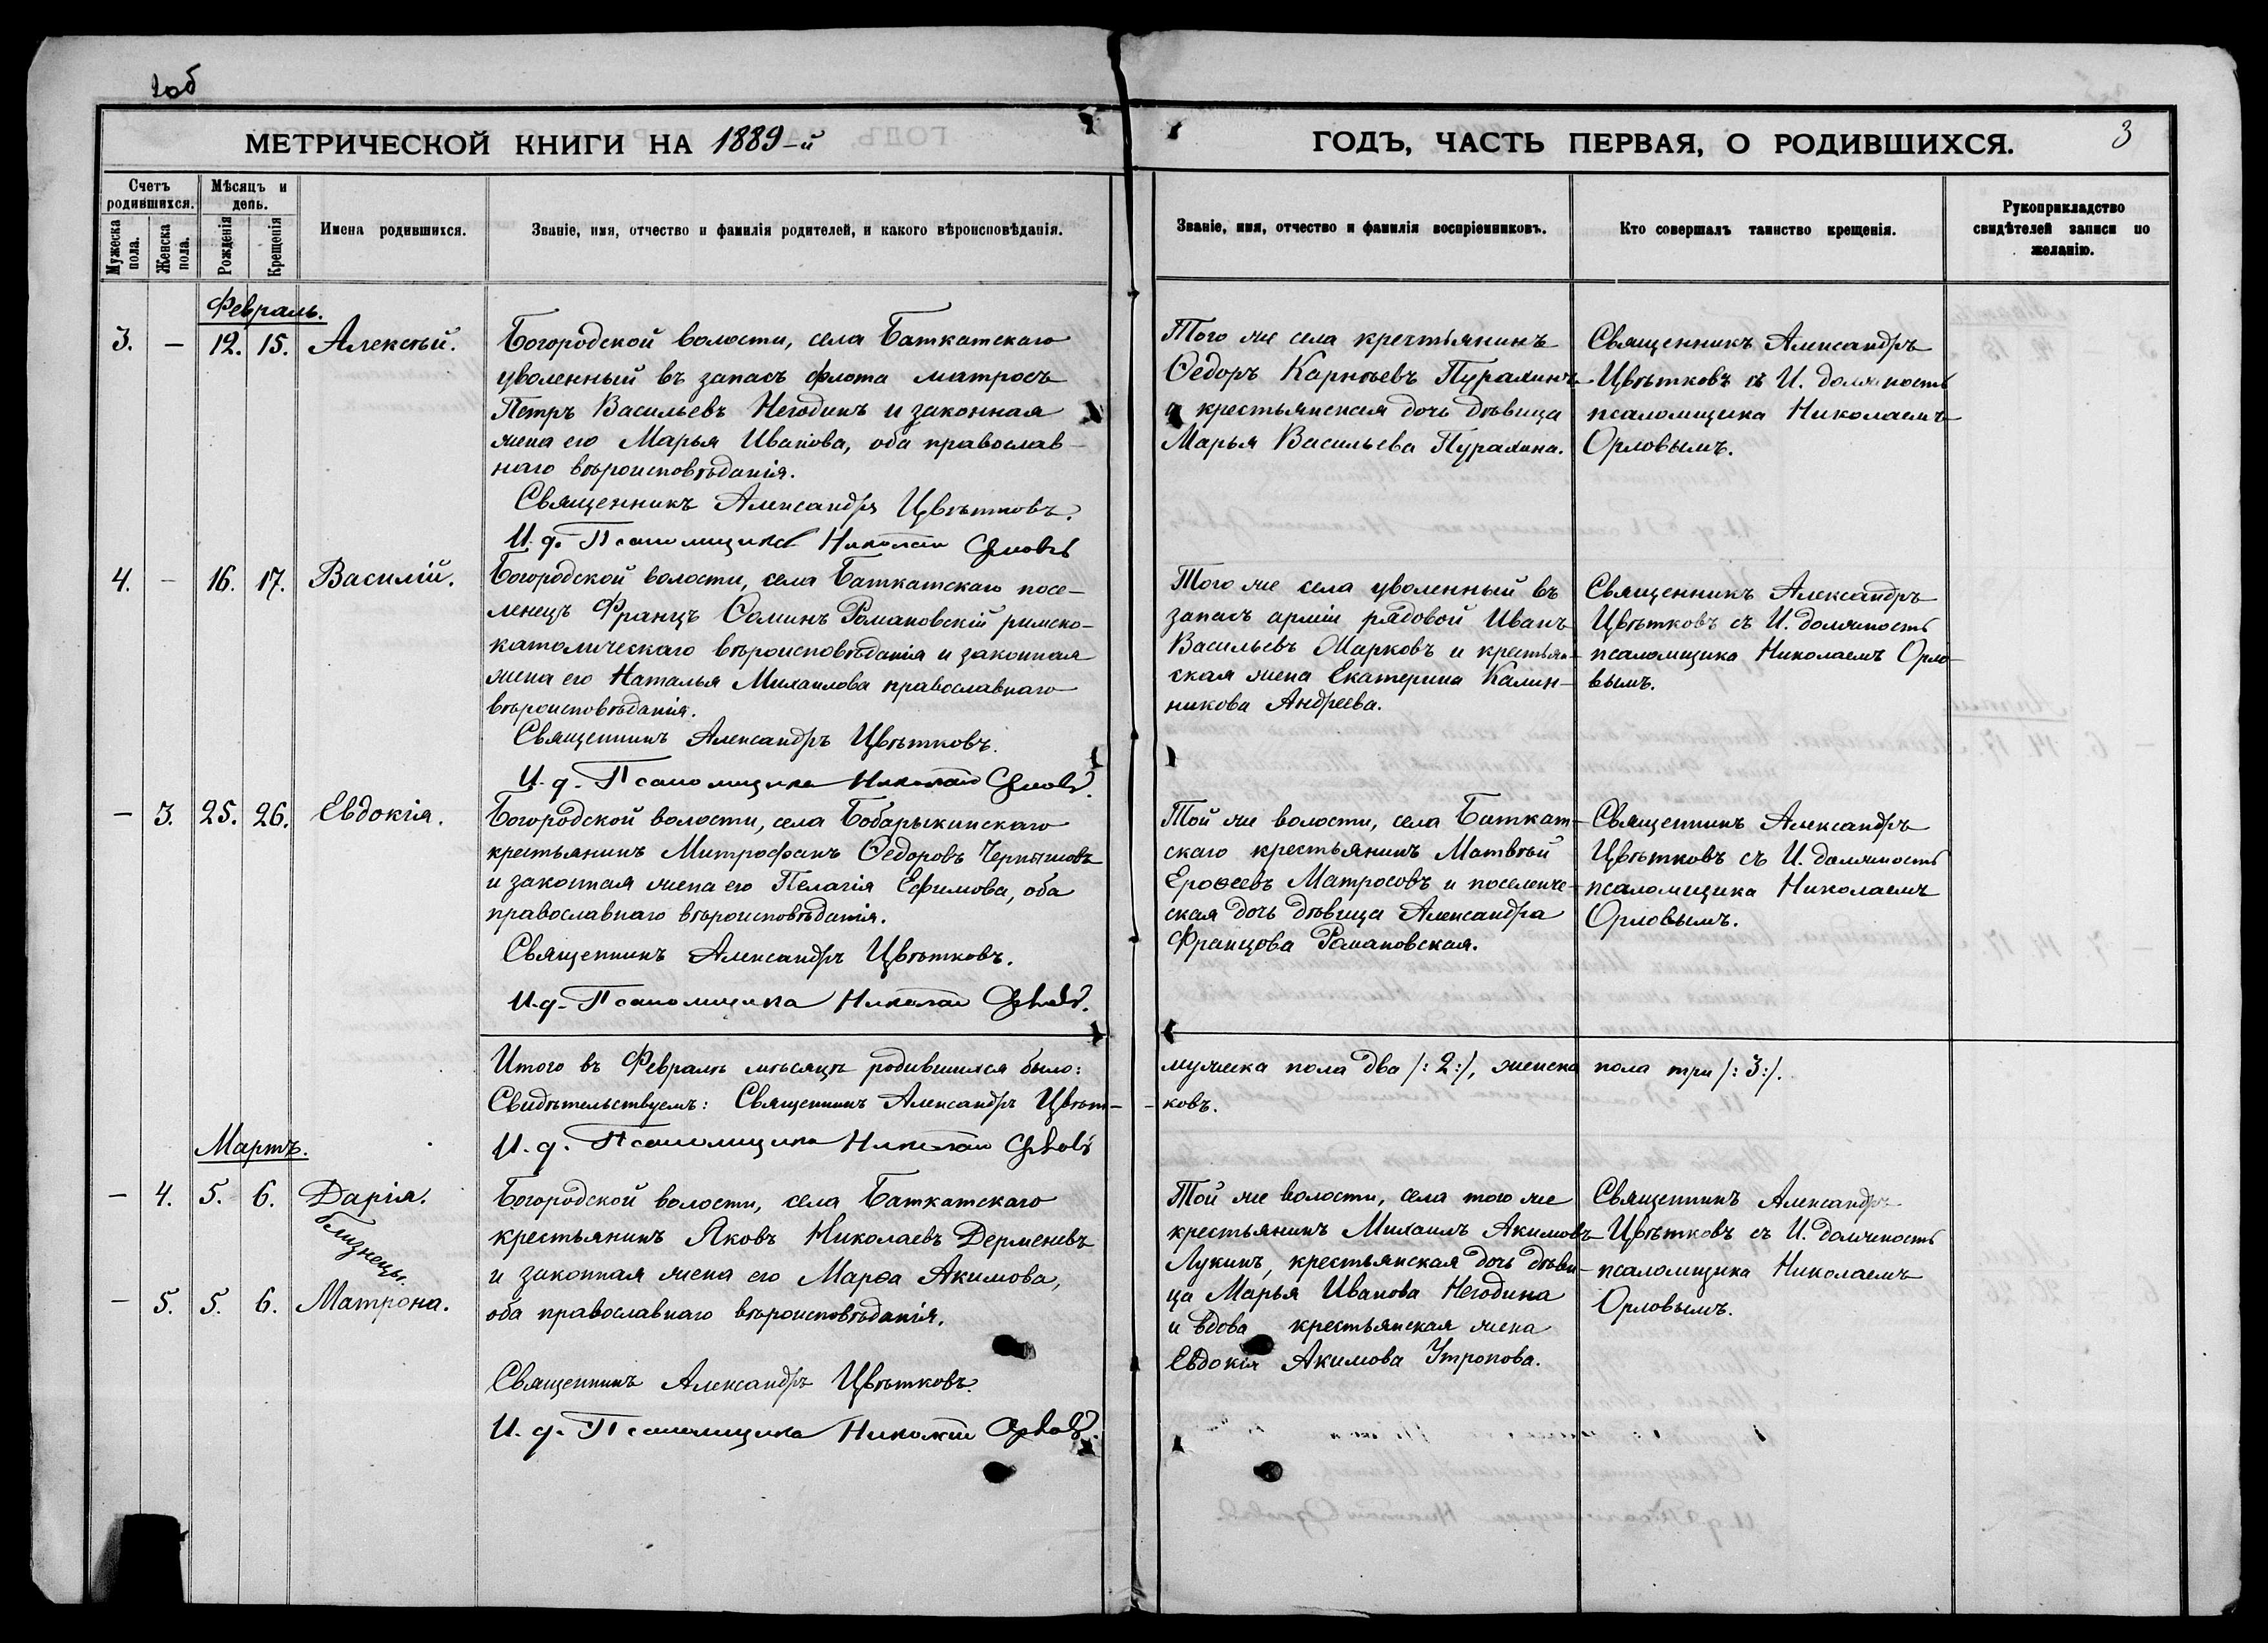 2об
МЕТРИЧЕСКОЙ КНИГИ НА 1889-й
ГОДЪ, ЧАСТЬ ПЕРВАЯ, О РОДИВШИХСЯ.
3
Счетъ родившихся.
Мѣсяцъ и день.
Мужеска пола.
Женска пола.
Рожденія
Крещенія
Имена родившихся.
Званіе, имя, отчество и фамилія родителей, и какого вѣроисповѣданія.
Званіе, имя, отчество и фамилія воспріемниковъ.
Кто совершалъ таинство крещенія.
Рукоприкладство свидѣтелей записи по желанію.
Февраль.
3. – 12. 15. Алексѣй.
Богородской волости, села Баткатскаго
уволенный въ запасъ флота матросъ
Петръ Васильевъ Негодинъ и законная
жена его Марья Иванова, оба православ-
наго вѣроисповѣданія.
Священникъ Александръ Цвѣтковъ.
И. д. Псаломщика Николай Орловъ
Того же села крестьянинъ
Ѳедоръ Карпѣевъ Пурахинъ
и крестьянская дочь дѣвица
Марья Васильева Пурахина.
Священникъ Александръ
Цвѣтковъ съ И. должность
псаломщика Николаемъ
Орловымъ.
4. – 16. 17. Василій.
Богородской волости, села Баткатскаго посе-
ленецъ Францъ Осминъ Романовскій римско-
католическаго вѣроисповѣданія и законная
жена его Наталья Михаилова православнаго
вѣроисповѣданія.
Священникъ Александръ Цвѣтковъ.
И. д. Псаломщика Николай Орловъ.
Того же села уволенный въ
запасъ арміи рядовой Иванъ
Васильевъ Марковъ и крестьян-
ская жена Екатерина Калин-
никова Андреева.
Священникъ Александръ
Цвѣтковъ съ И. должность
псаломщика Николаемъ Орло-
вымъ.
– 3. 25. 26. Евдокія.
Богородской волости, села Бобарыкинскаго
крестьянинъ Митрофанъ Ѳедоровъ Чернышовъ
и законная жена его Пелагія Ефимова, оба
православнаго вѣроисповѣданія.
Священникъ Александръ Цвѣтковъ.
И. д. Псаломщика Николай Орловъ.
Той же волости, села Баткат-
скаго крестьянинъ Матвѣй
Ероѳеевъ Матросовъ и поселенче-
ская дочь дѣвица Александра
Францова Романовская.
Священникъ Александръ
Цвѣтковъ съ И. должность
псаломщика Николаемъ
Орловымъ.
Итого въ Февралѣ мѣсяцѣ родившихся было:
мужеска пола два /:2:/, женска пола три /:3:/.
Свидѣтельствуемъ: Священникъ Александръ Цвѣт-
-ковъ.
И. д. Псаломщика Николай Орловъ
Мартъ.
– 4. 5. 6. Дарія.
близнецы.
– 5. 5. 6. Матрона.
Богородской волости, села Баткатскаго
крестьянинъ Яковъ Николаевъ Дерменевъ
и законная жена его Марѳа Акимова,
оба православнаго вѣроисповѣданія.
Священникъ Александръ Цвѣтковъ.
И. д. Псаломщика Николай Орловъ.
Той же волости, села того же
крестьянинъ Михаилъ Акимовъ
Лукинъ, крестьянская дочь дѣви-
ца Марья Иванова Негодина
и вдова крестьянская жена
Евдокія Акимова Утропова.
Священникъ Александръ
Цвѣтковъ съ И. должность
псаломщика Николаемъ
Орловымъ.